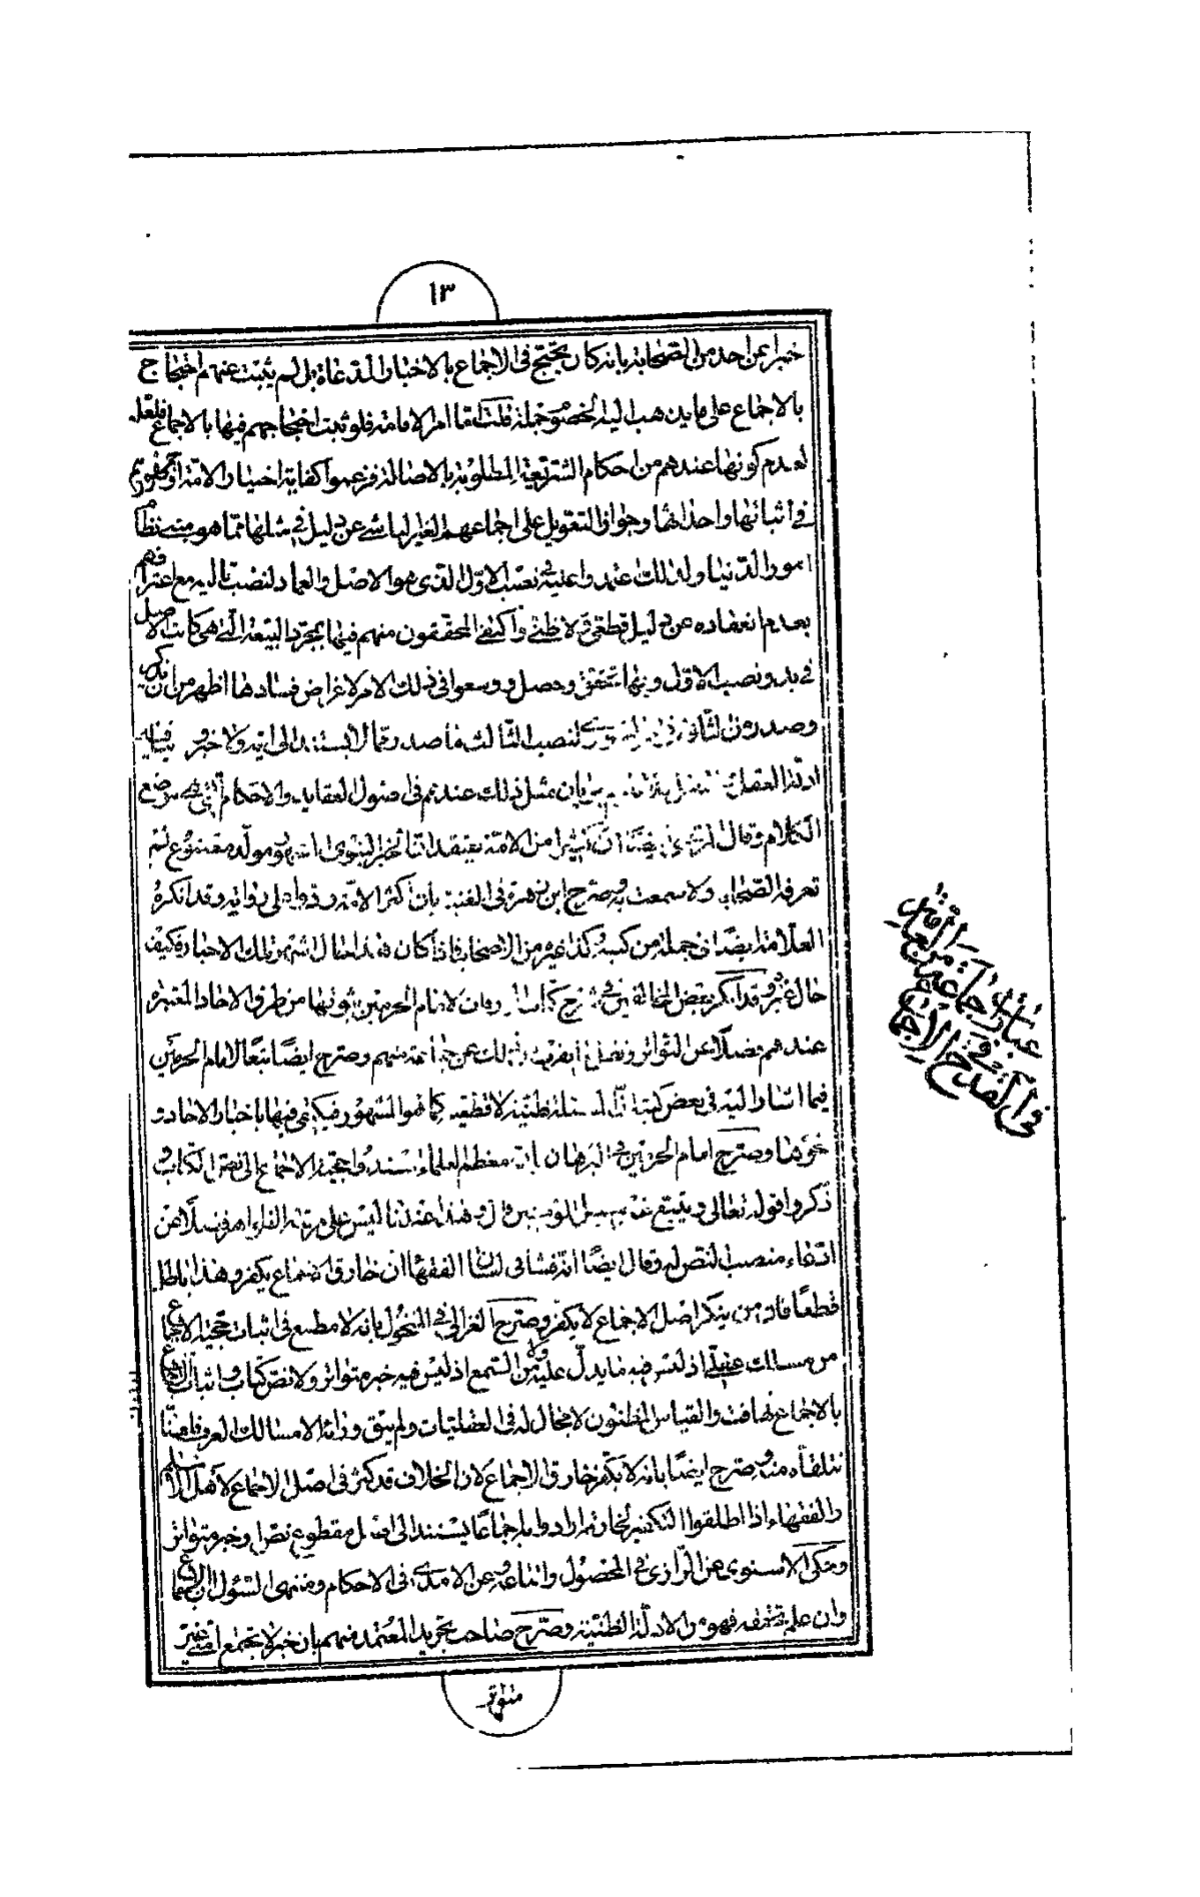 ١٣
خبرا عن احد من الصحابة بانه كان يحتج فى الاجماع بالاخبار المدعاة بل لم يثبت عنهم احتجاج
بالاجماع على ما يذهب اليه الخصوم جملة قلت اما امر الامامة فلو ثبت احتجاجهم فيها بالاجماع فلعله
لعدم كونها عندهم من احكام الشريعة المطلوبة بالاصالة فزعموا كفاية اختيار الامة او بعضهم
فى اثباتها واحداثها وجواز التعويل على اجماعهم الغير الناشى عن دليل فى مثلها مما هو مبنى نظام
امور الدنيا ولذلك اعتمدوا عليه فى نصب الاول الذى هو الاصل والعماد لنصب تاليه مع اعترافهم
بعدم انعقاده عن دليل قطعى ولا ظنى واكتفى المحققون منهم فيها بمجرد البيعة التى هى كانت الاصل
فى بدو نصب الاول وبها تحقق وحصل ووسعوا فى ذلك الامر لاغراض فسادها اظهر من ان يذكر
وصدر من الثانى فى لنصب الثالث ما صدر مما لا يستند الى اية ولا خبر و
ادلة العقل بان مثل ذلك عندهم فى اصول العقايد والاحكام موضع
الكلام وقال ايضا ان كثيرا من الامة يعتقد ان الخبر النبوى مولد مصنوع لم
تعرفه الصحابة ولا سمعت به وصرح ابن زهرة فى الغنية بان اكثر الامة ردوا روايته وقد انكره
العلامة ايضا فى جملة من كتبه وكذا غيره من الاصحاب فاذا كان هذا حال اشهر تلك الاخبار فكيف
حال غيره وقد انكر بعض المخالفين فى شرح كتاب البرهان لامام الحرمين ثبوتها من طرق الاحاد المعتبرة
عندهم فضلا عن التواتر ونقل ذلك عن ائمة منهم وصرح ايضا تبعا لامام الحرمين
فيما اشار اليه فى بعض كتبه بان المسئلة ظنية لا قطعية كما هو المشهور فيكتفى فيها باخبار الاحاد و
نحوها وصرح امام الحرمين فى البرهان بان معظم العلماء اسندوا حجية الاجماع الى نص الكتاب و
ذكروا قوله تعالى ويتبع غير سبيل المؤمنين قال وهذا عندنا ليس على مرتبة الظواهر فضلا عن
ادعاء منصب النص له وقال ايضا انه فشا فى لسان الفقهاء ان خارق الاجماع يكفر وهذا باطل
قطعا فان من ينكر اصل الاجماع لا يكفر وصرح الغزالى فى المنخول بانه لا مطمع فى اثبات حجية الاجماع
من مسالك عقلى اذ ليس فيه ما يدل عليه ولا من السمع اذ ليس فيه خبر متواتر ولا نص كتاب واثبات الاجماع
بالاجماع تهافت والقياس المظنون لا مجال له فى العقليات ولم يبق ورائه الا مسالك العرف فلعلنا
نتلقاه منه وصرح ايضا بانه لا يكفر خارق الاجماع لان الخلاف قد كثر فى اصل الاجماع لاهل الاسلام
والفقهاء اذا اطلقوا التكفير لخارقه ارادوا به اجماعا يستند الى اصل مقطوع نص او خبر متواتر
وحكى الاسنوى عن الرازى فى المحصول واتباعه وعن الامدى فى الاحكام ومنتهى السئول ان الاجماع
وان علم تحققه فهو من الادلة الظنية وصرح صاحب تجريد المعتمد منهم بان خبر لا تجتمع امتى غير
متواتر
عبارات جماعة من العامة
فى القدح فى الاجماع